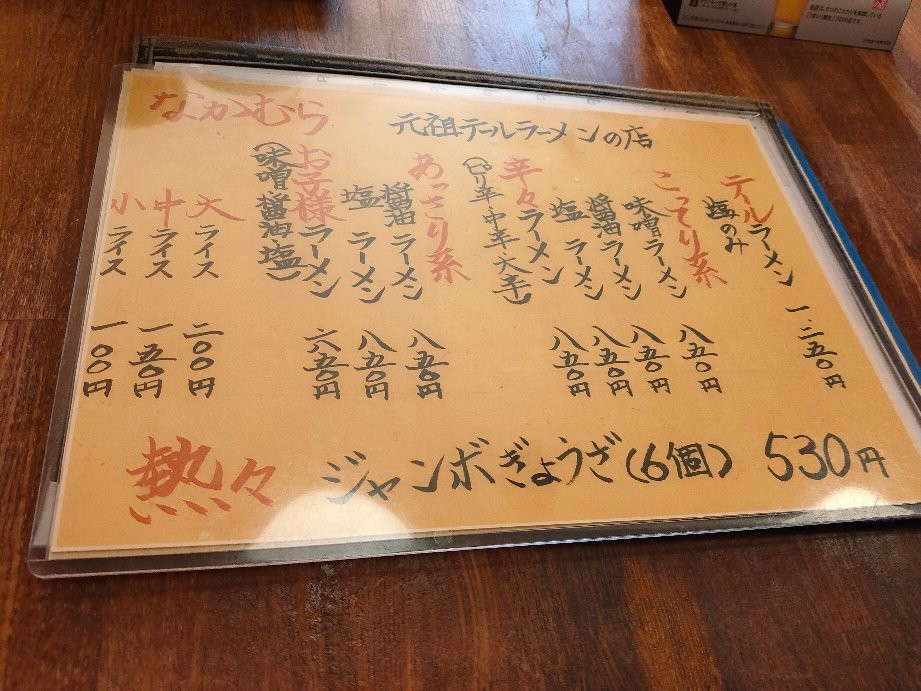 なかむら 元祖テールラーメンの店
テールラーメン 一、二五〇円
塩のみ
こってり系
味噌ラーメン 八五〇円
醤油ラーメン 八五〇円
塩ラーメン 八五〇円
辛々ラーメン 八五〇円
(ピリ辛 中辛 大辛)
あっさり系
醤油ラーメン 八五〇円
塩ラーメン 八五〇円
お子様ラーメン 六五〇円
(味噌 醤油 塩)
大ライス 二〇〇円
中ライス 一五〇円
小ライス 一〇〇円
熱々 ジャンボぎょうざ(6個) 530円